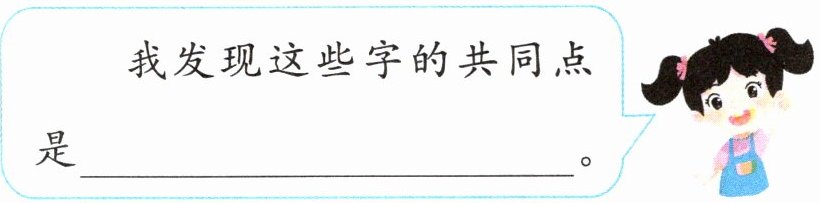 我发现这些字的共同点
是____________________。